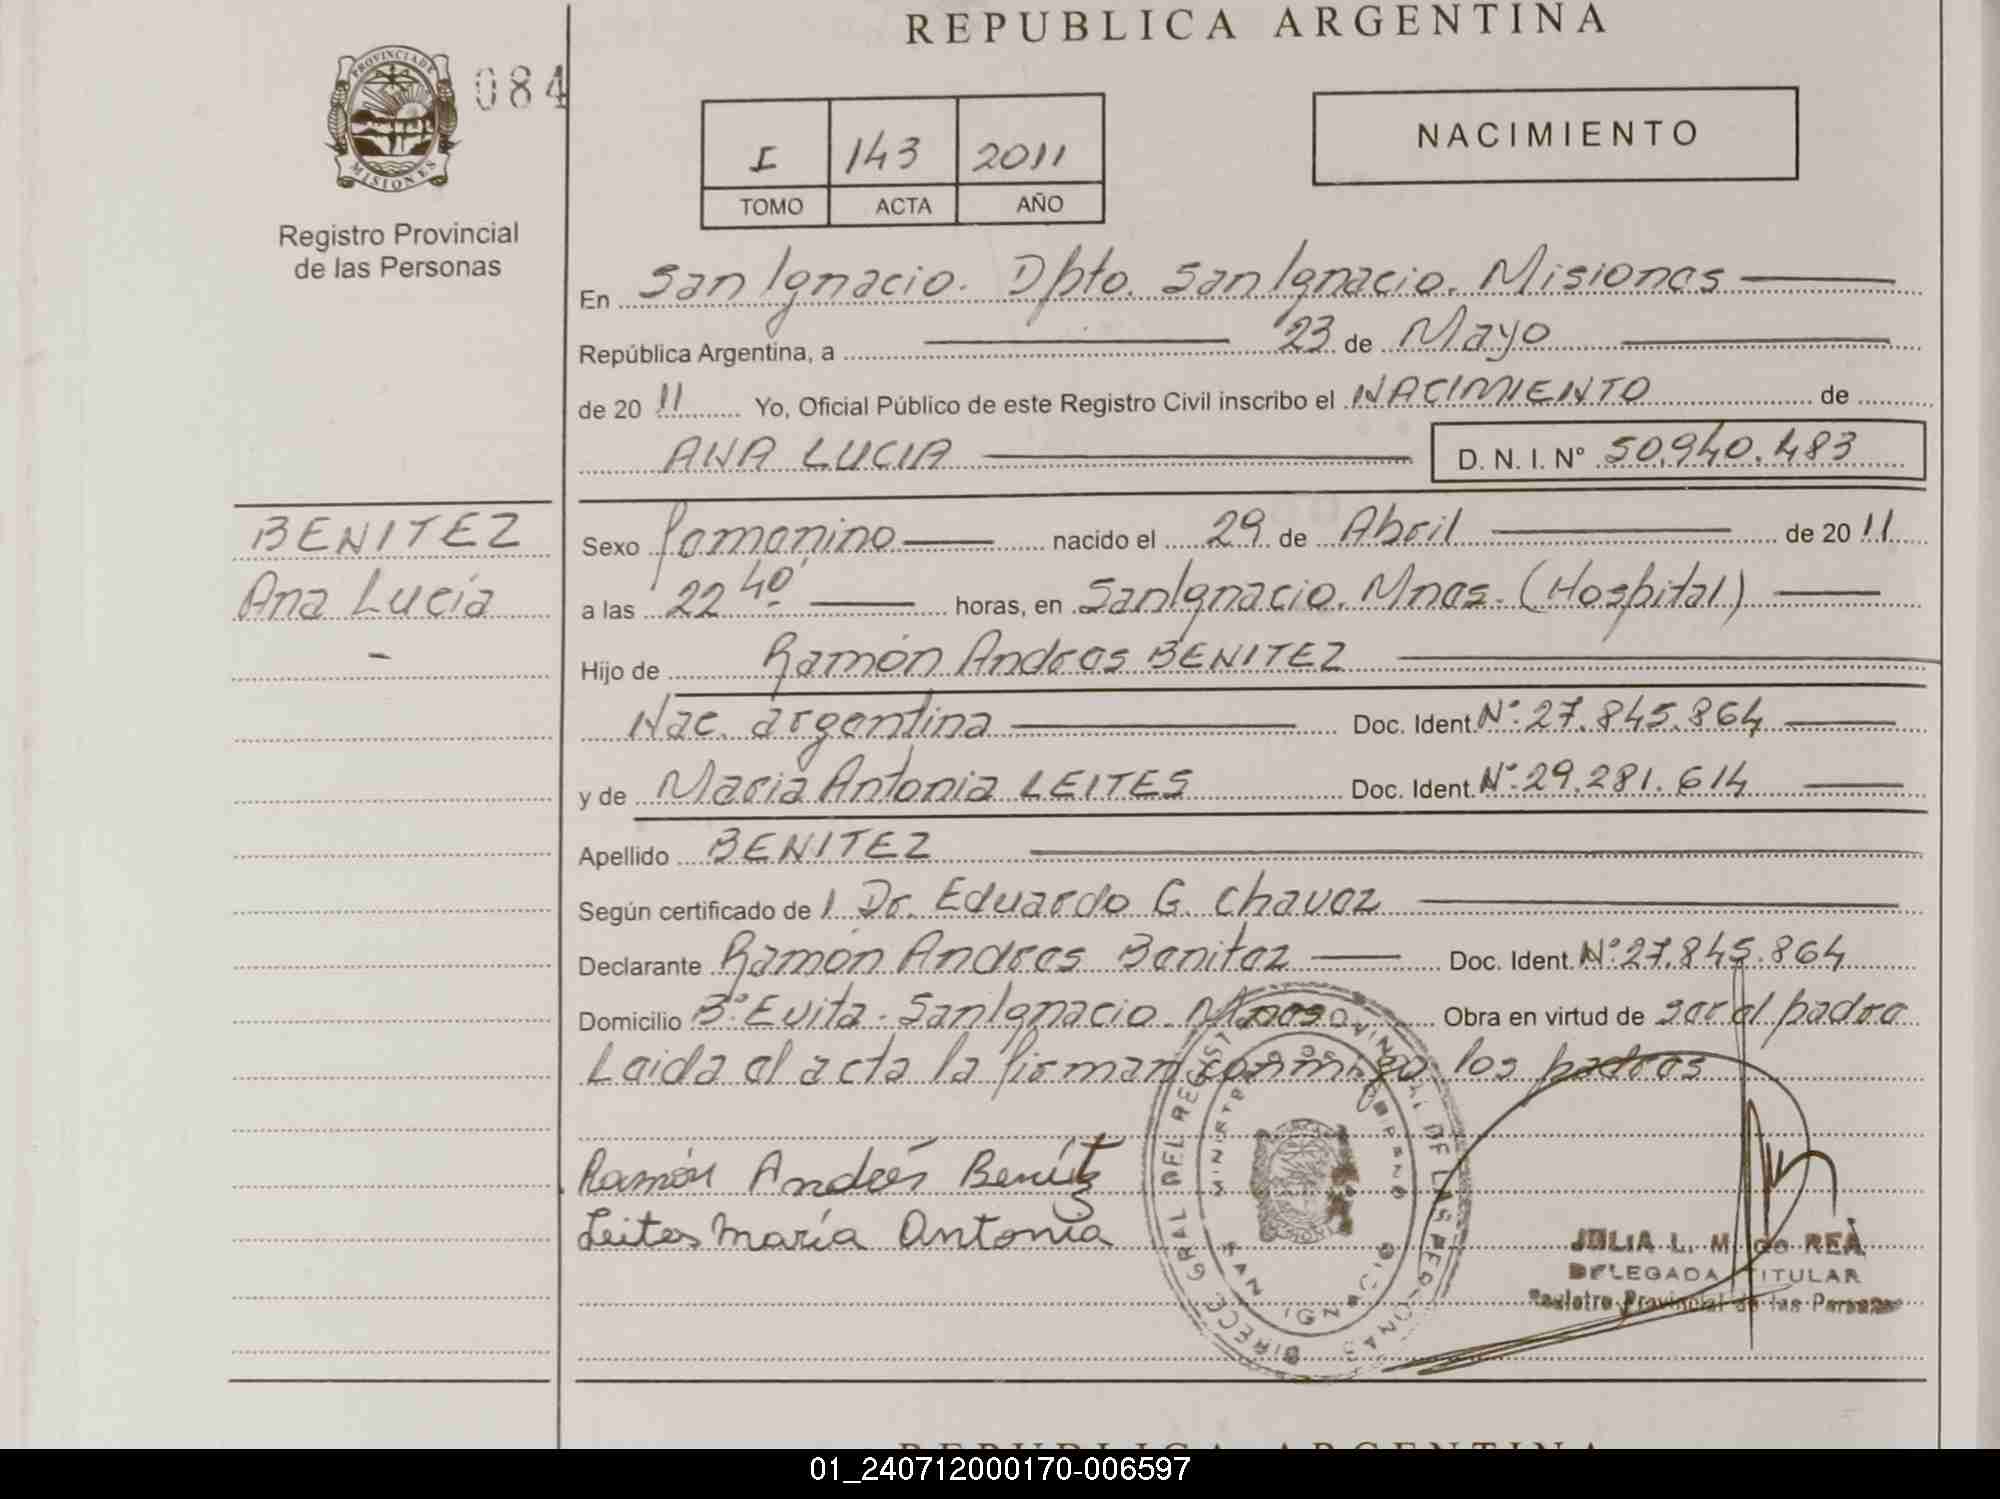 REPUBLICA ARGENTINA
PROVINCIA DE MISIONES
084
Registro Provincial
de las Personas
I 143 2011
TOMO ACTA AÑO
NACIMIENTO
En San Ignacio. Dpto. San Ignacio. Misiones
República Argentina, a 23 de Mayo
de 20 11 Yo, Oficial Público de este Registro Civil inscribo el NACIMIENTO de
ANA LUCIA D. N. I. Nº 50.940.483
BENITEZ
Ana Lucía
-
Sexo femenino nacido el 29 de Abril de 20 11
a las 22 40' horas, en San Ignacio. Mnes. (Hospital)
Hijo de Ramón Andres BENITEZ
Nac. argentina Doc. Ident. Nº: 27.845.864
y de Maria Antonia LEITES Doc. Ident. Nº: 29.281.614
Apellido BENITEZ
Según certificado de l Dr. Eduardo G. Chavez
Declarante Ramón Andres Benitez Doc. Ident. Nº: 27.845.864
Domicilio Bº Evita - San Ignacio. Mnes Obra en virtud de ser el padre
Leida el acta la firman conmigo los padres
Ramón Andrés Benítez
Leites María Antonia
DIRECC GRAL DEL REGISTRO PROVINCIAL DE LAS PERSONAS
SAN IGNACIO
JULIA L. REA
DELEGADA TITULAR
Registro Provincial de las Personas
REPUBLICA ARGENTINA
01_240712000170-006597